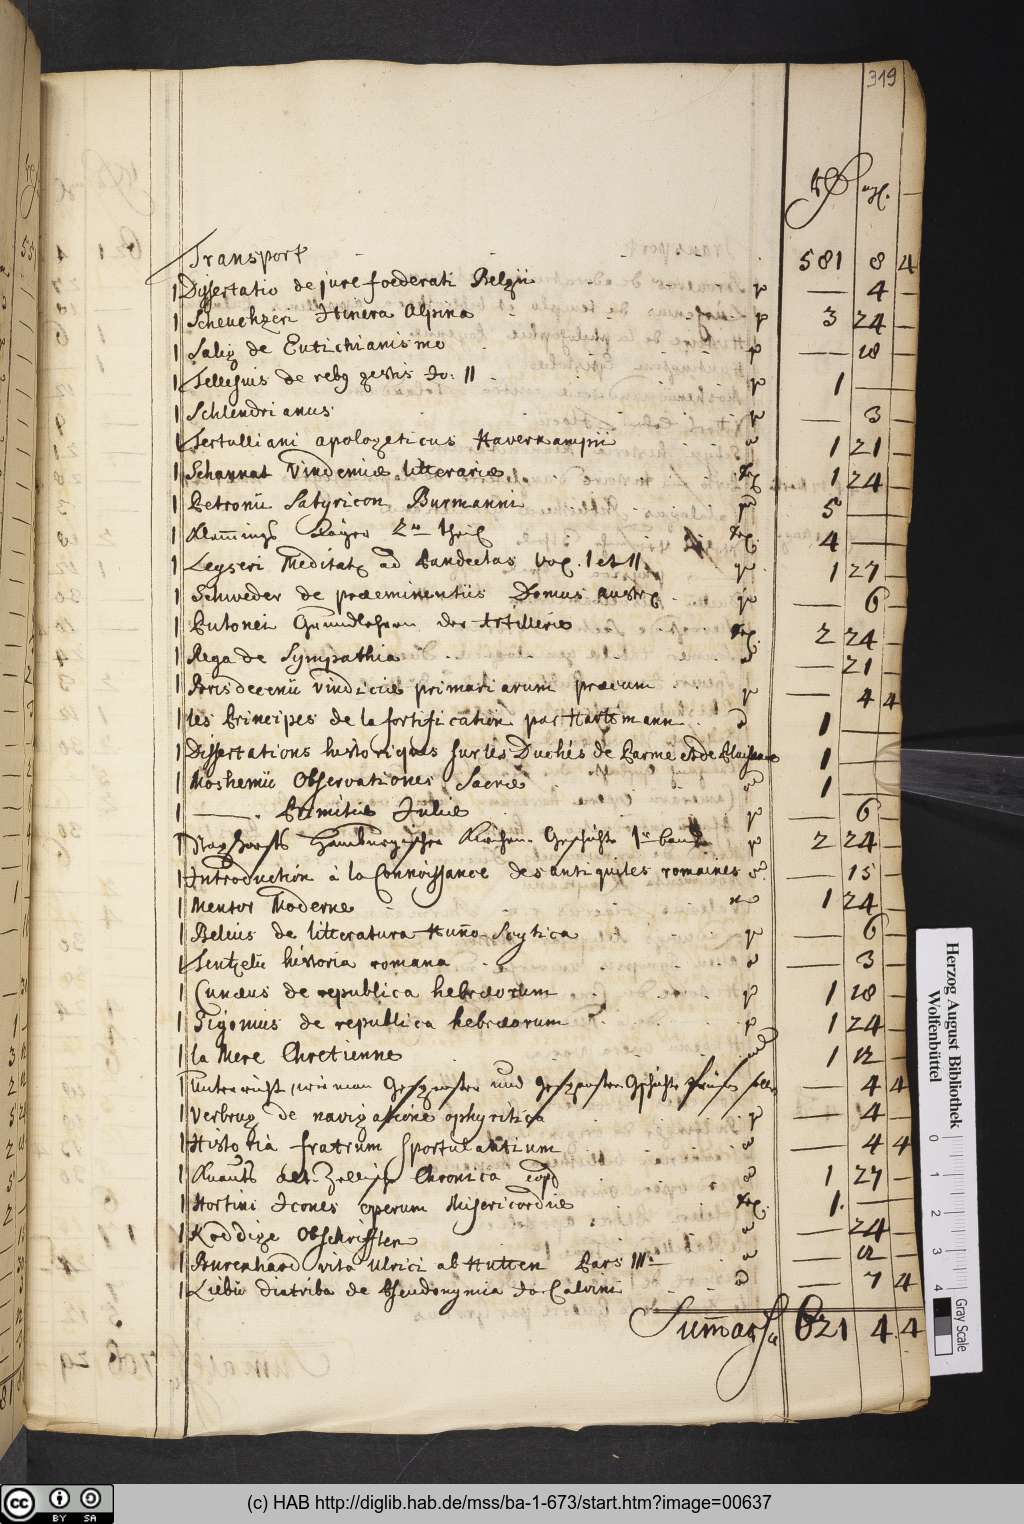 319
Transport 581 8 4
1 Dissertatio de jure foederati Belgii — 4 —
1 Scheuchzeri Itinera Alpina 3 24 —
1 Salig de Eutichianismo — 18 —
1 Tellesius de reb9 gestis Jo: II 1 — —
1 Schlendrianus — 3 —
1 Tertulliani apologeticus Haverkampii 1 21 —
1 Schannat Vindemiæ litterariæ 1 24 —
1 Petronii Satyricon Burmanni 5 — —
1 4 — —
1 Leyseri Meditat ad Pandectas Vol. I et II 1 27 —
1 Schweder de præeminentiis Domus Austr — 6 —
1 Grundlehren der Artillerie 2 24 —
1 Rega de Sympathia — 21 —
1 vindiciæ primariarum precum — 4 4
1 les Principes de la fortification par Hartsmann 1 — —
1 Dissertations historiques sur les Duchés de Parme et de Plaisance 1 — —
1 Moshemii Observationes Sacræ 1 — —
1 — Primitiæ Juliæ — 6 —
1 Hamburgische Kirchen Geschichte 1r band 2 24 —
1 Introduction à la Connoissance des antiquites romaines — 15 —
1 Mentor Moderne 1 24 —
1 Belius de litteratura Hunno Scytica — 6 —
1 historia romana — 3 —
1 Cunæus de republica hebræorum 1 18 —
1 Sigonius de republica hebræorum 1 24 —
1 la Mere Chretienne 1 12 —
1 Unterricht, wie man Gespenster und Gespenster Geschichte prüfen solle — 4 4
1 Verbrug de navigatione ophyritica — 4 —
1 Historia fratrum sportulantium — 4 4
1 Chronica 1 27 —
1 Icones operum Misericordiæ 1. — —
1 Schrifften — 24 —
1 Burckhard vita Ulrici ab Hutten Pars III — 12 —
1 Liebii diatriba de Pseudonymia Jo Calvini — 7 4
Summa 621 4 4
Herzog August Bibliothek
Wolfenbüttel
0 1 2 3 4
Gray Scale
cc BY SA
(c) HAB http://diglib.hab.de/mss/ba-1-673/start.htm?image=00637